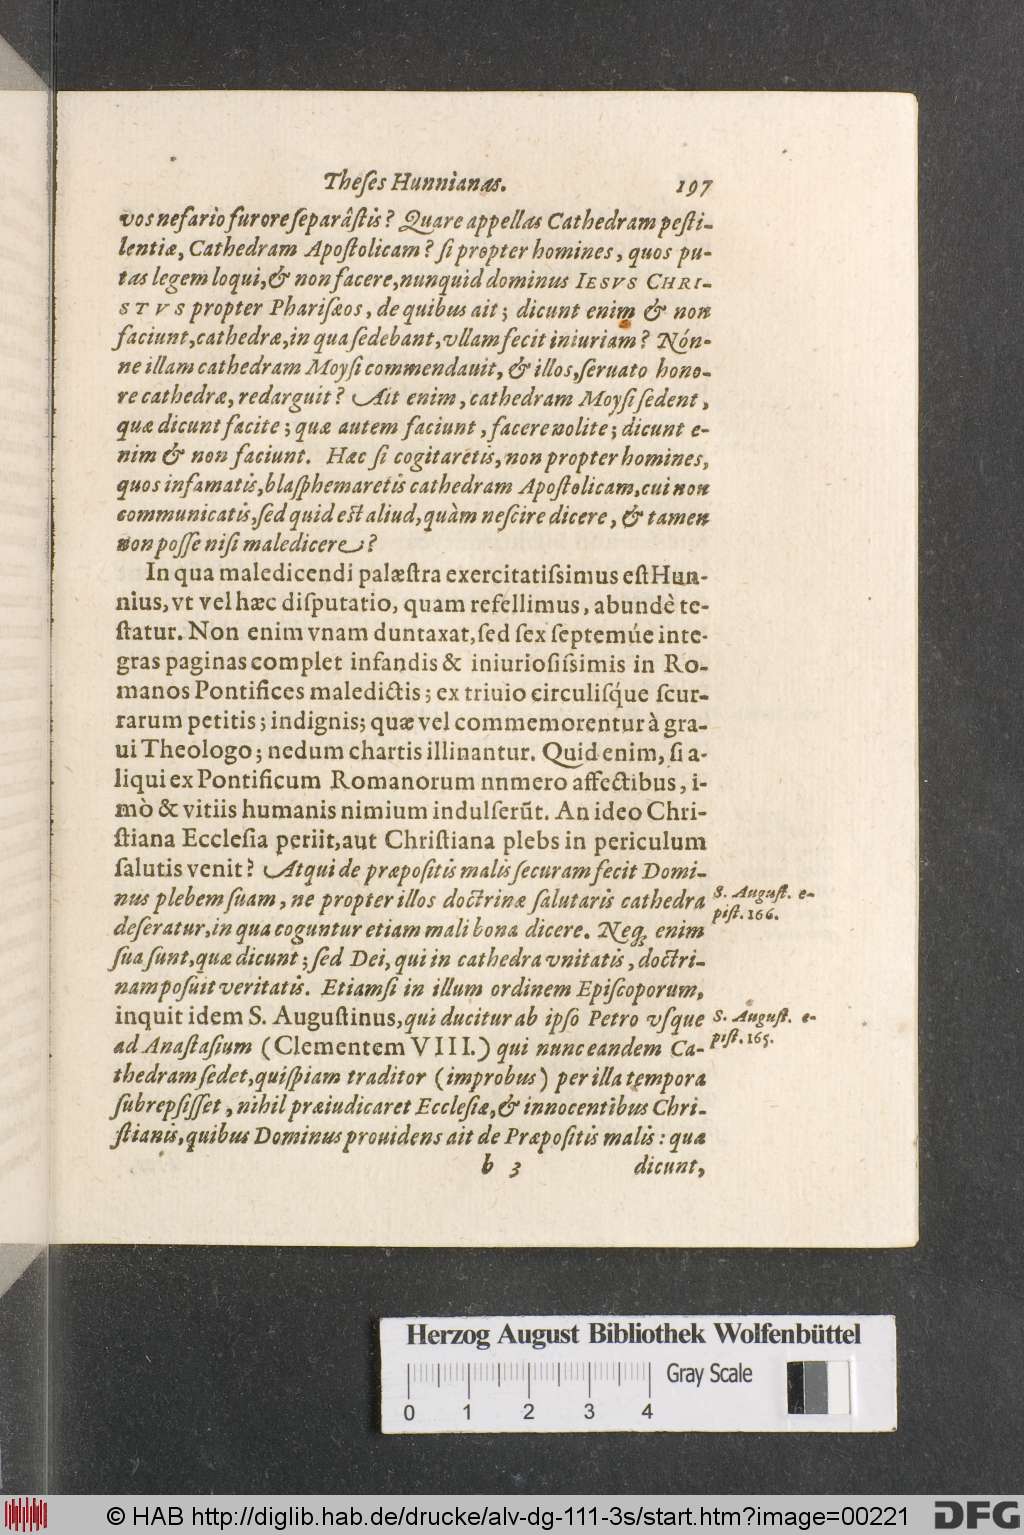 Theſes Hunnianas. 197
vos nefario furore ſeparâſtis? Quare appellas Cathedram peſti-
lentiæ, Cathedram Apoſtolicam? ſi propter homines, quos pu-
tas legem loqui, & non facere, nunquid dominus IESVS CHRI-
STVS propter Phariſæos, de quibus ait; dicunt enim & non
faciunt, cathedræ, in qua ſedebant, vllam fecit iniuriam? Nón-
ne illam cathedram Moyſi commendauit, & illos, ſeruato hono-
re cathedræ, redarguit? Ait enim, cathedram Moyſi ſedent,
quæ dicunt facite; quæ autem faciunt, facere nolite; dicunt e-
nim & non faciunt. Hæc ſi cogitaretis, non propter homines,
quos infamatis, blaſphemaretis cathedram Apoſtolicam, cui non
communicatis, ſed quid eſt aliud, quàm neſcire dicere, & tamen
non poſſe niſi maledicere?
In qua maledicendi palæſtra exercitatiſsimus eſt Hun-
nius, vt vel hæc diſputatio, quam refellimus, abundè te-
ſtatur. Non enim vnam duntaxat, ſed ſex ſeptemúe inte-
gras paginas complet infandis & iniurioſiſsimis in Ro-
manos Pontifices maledictis; ex triuio circuliſq́ue ſcur-
rarum petitis; indignis; quæ vel commemorentur à gra-
ui Theologo; nedum chartis illinantur. Quid enim, ſi a-
liqui ex Pontificum Romanorum nnmero affectibus, i-
mò & vitiis humanis nimium indulſerūt. An ideo Chri-
ſtiana Eccleſia periit, aut Chriſtiana plebs in periculum
ſalutis venit? Atqui de præpoſitis malis ſecuram fecit Domi-
nus plebem ſuam, ne propter illos doctrinæ ſalutaris cathedra
deſeratur, in qua coguntur etiam mali bona dicere. Neq; enim
ſua ſunt, quæ dicunt; ſed Dei, qui in cathedra vnitatis, doctri-
nam poſuit veritatis. Etiamſi in illum ordinem Epiſcoporum,
inquit idem S. Auguſtinus, qui ducitur ab ipſo Petro vſque
ad Anaſtaſium (Clementem VIII.) qui nunc eandem Ca-
thedram ſedet, quiſpiam traditor (improbus) per illa tempora
ſubrepſiſſet, nihil præiudicaret Eccleſiæ, & innocentibus Chri-
ſtianis, quibus Dominus prouidens ait de Præpoſitis malis: quæ
b 3 dicunt,
S. Auguſt. e-
piſt. 166.
S. Auguſt. e-
piſt. 165.
Herzog August Bibliothek Wolfenbüttel
Gray Scale
0 1 2 3 4
© HAB http://diglib.hab.de/drucke/alv-dg-111-3s/start.htm?image=00221
DFG